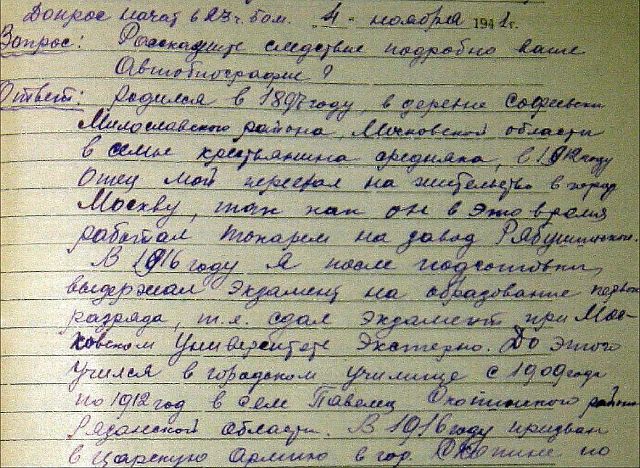 Допрос начат в 23 ч. 50 м. 4 - ноября 1941 г.
Вопрос: Расскажите следствие подробно ваше
Автобиографие?
Ответ: Родился в 1897 году, в деревне
Милославского района, Московской области
в семье крестьянина средняка, в 1912 году
Отец мой переехал на жительство в город
Москву, так как он в это время
работал токарем на завод
В 1916 году я после подготовки,
выдержал экзамен на образование первого
разряда, т.я. сдал экзамент при Мос-
ковском Университете Экстерно. До этого
учился в городском училище с 1909 года
по 1912 год в селе Павелец района
Рязанской области. В 1916 году призван
в царскую Армию в гор. по